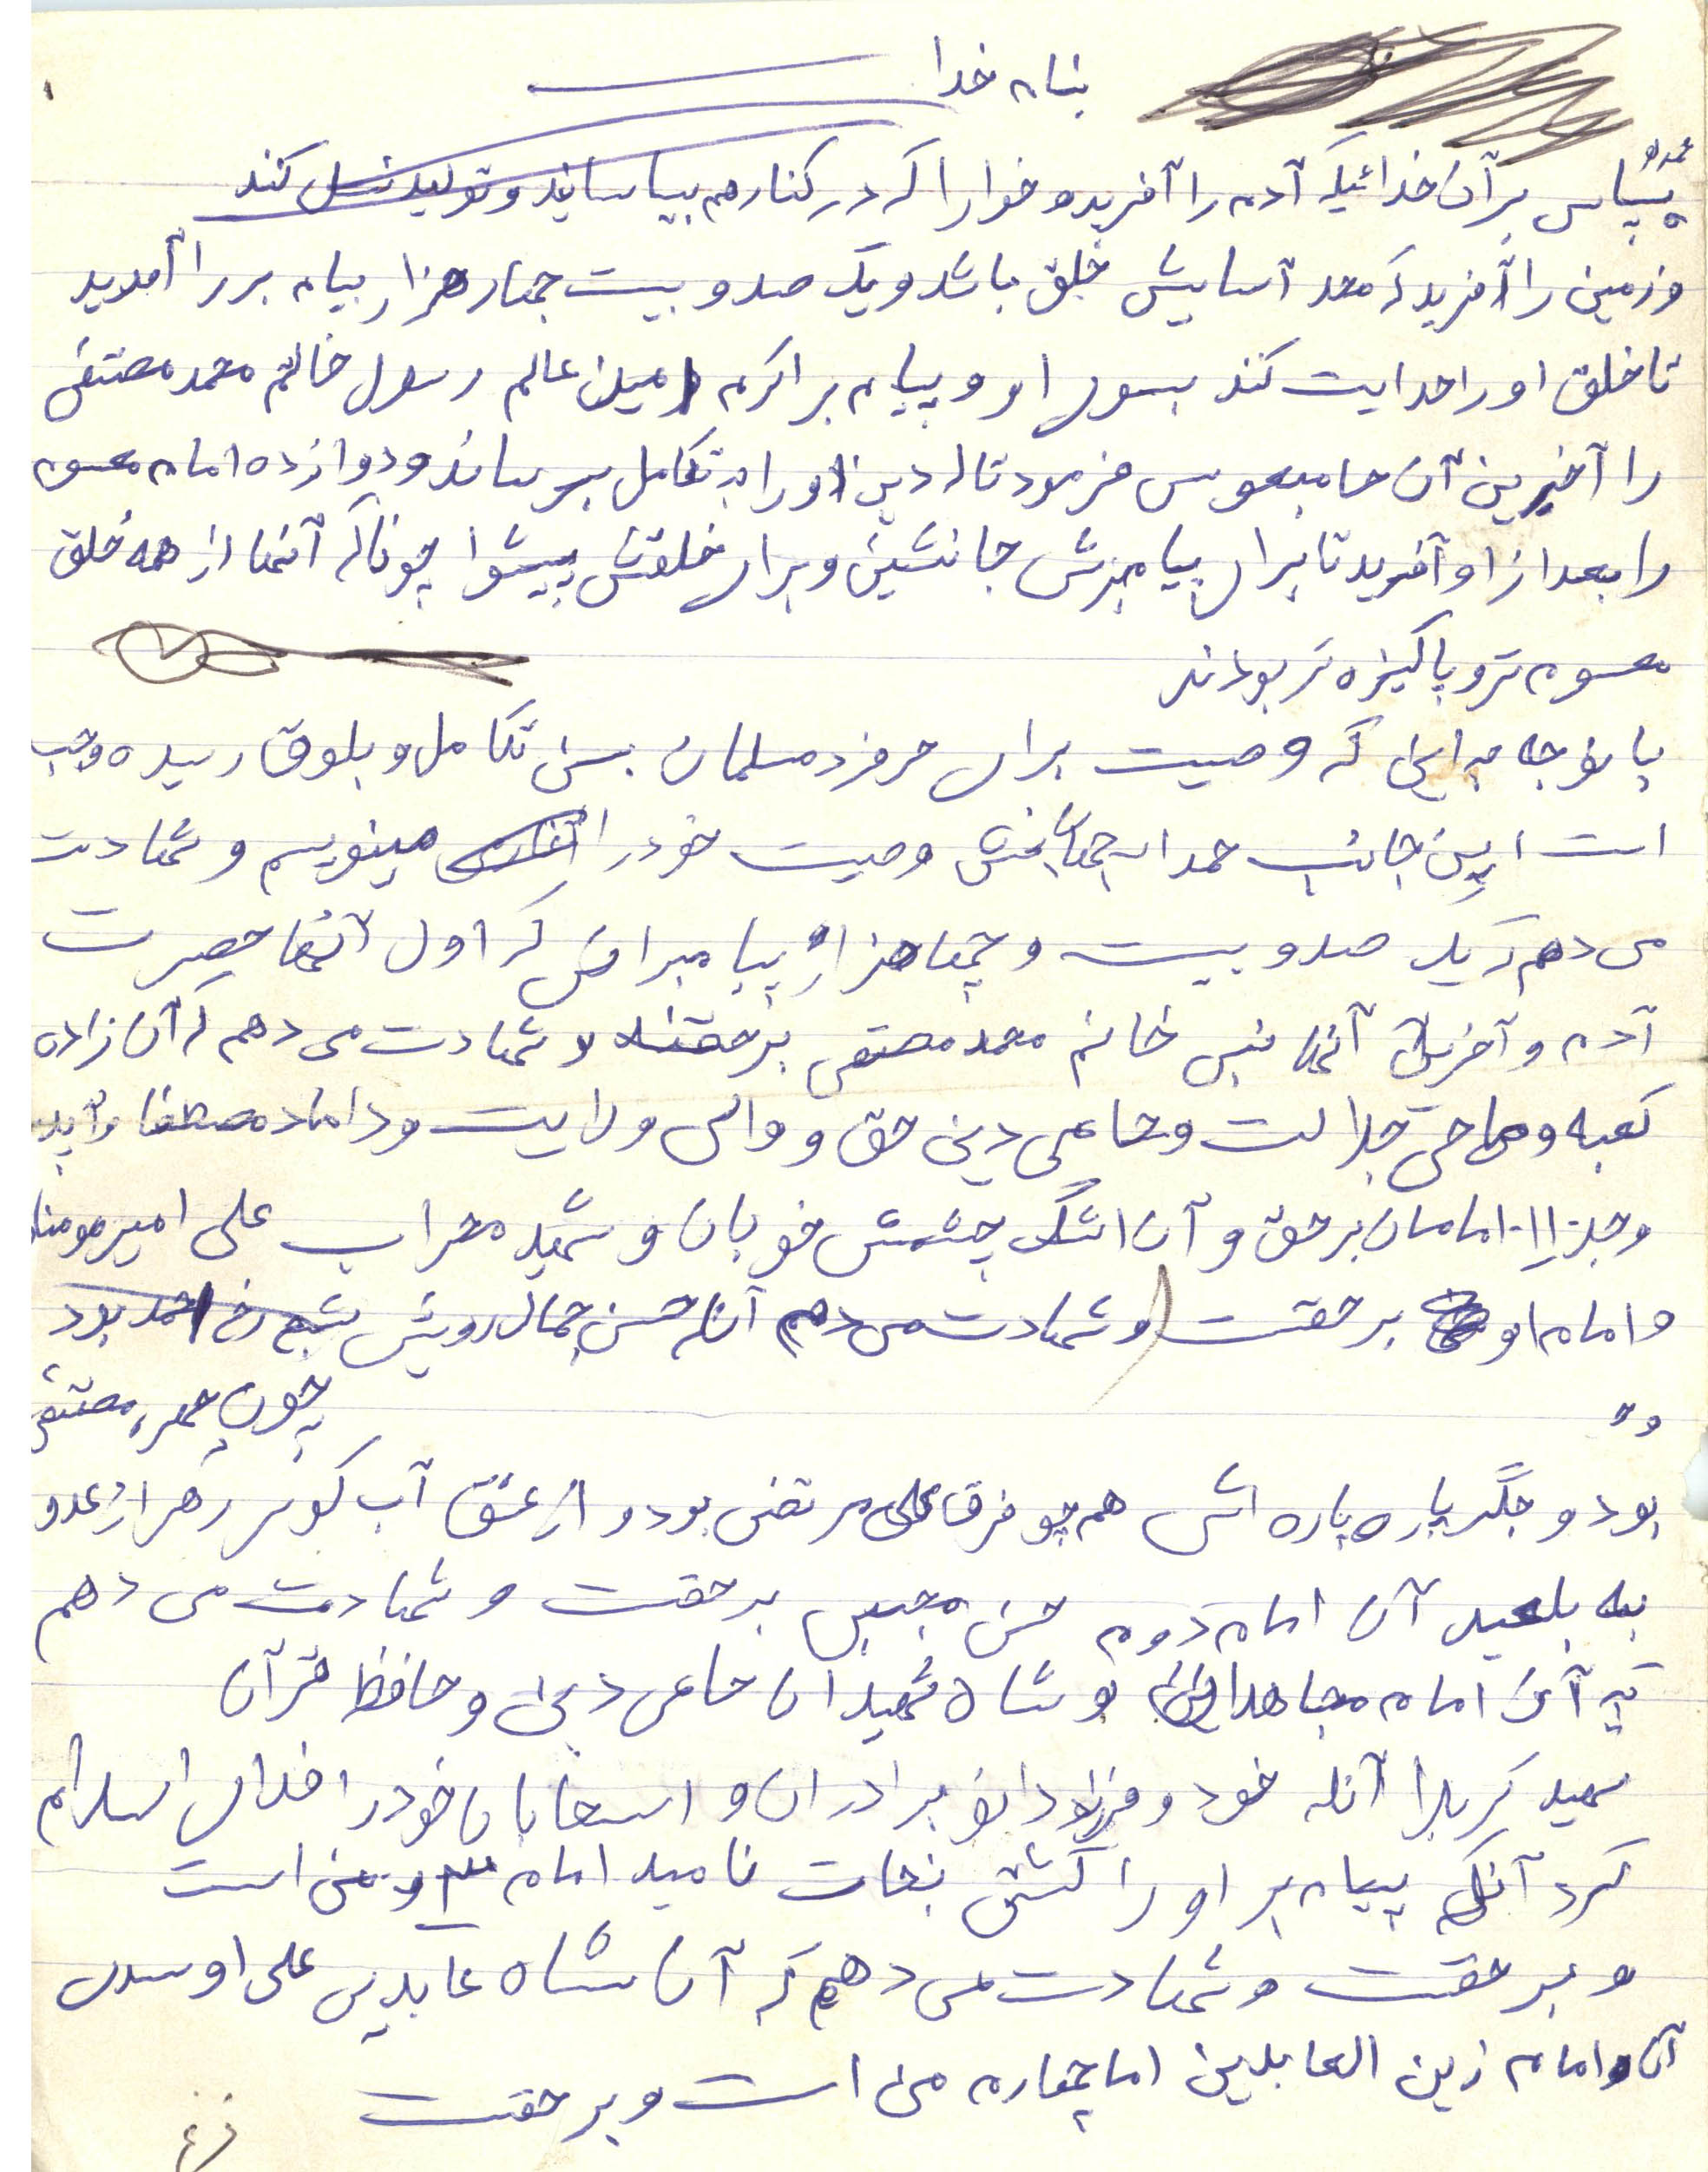 بنام خدا
۱
سپاس بر آن خدائیکه آدم را آفریده و حوا را که در کنار هم بیاسایند و تولید نسل کند
و زمین را آفرید که مهد آسایش خلق باشد و یک صد و بیست چهار هزار پیام بر را آفرید
تا خلق او را هدایت کند بسوی او و پیام بر اکرم امین عالم رسول خاتم محمد مصتفی
را آخرین آن ها مبعوس فرمود تا دین او را به تکامل برساند و دوازده امام معسوم
را بعد از او آفرید تا برای پیامبرش جانشین و برای خلقش پیشوا چونکه آنها از همه خلق
معسوم تر و پاکیزه تر بوداند
با توجه به این که وصیت برای هر فرد مسلمان بسن تکامل و بلوق رسیده وجب
است این جانب وصیت خود را مینویسم و شهادت
می دهم که یک صد و بیست و چهار هزار پیامبرانش که اول آنها حضرت
آدم و آخرین آنها نبی خاتم محمد مصتفی برحقند و شهادت می دهم که آن زاده
کعبه و صاحی جلالت و حامی دین حق و والی ولایت و داماد مصطفا
و جز امامان بر حق و آن اشک چشمش خوبان و شهید محراب علی امیر مومنا
و امام او برحقست و شهادت می دهم آنکه حسن جمال رویش شبح رخ احمد بود
و چون مصتفی
بود و جگر پاره پاره اش هم چو فرق علی مرتضی بود و از عشق آب کوسر زهر از عدو
به بلعید آن امام دوم حسن مجتبی برحقست و شهادت می دهم
که آن امام مجاهدان و شاه شهیدان حامی دین و حافظ قرآن
شهید کربلا آنکه خود و فرزندان و برادران و اسحابان خود را فدای اسلام
کرد آنکه پیام بر او را کشتی نجات نامید امام ۳ من است
و برحقست و شهادت می دهم که آن شاه عابدین علی اوسدی
آن امام زین العابدین امام چهارم من است و برحقست